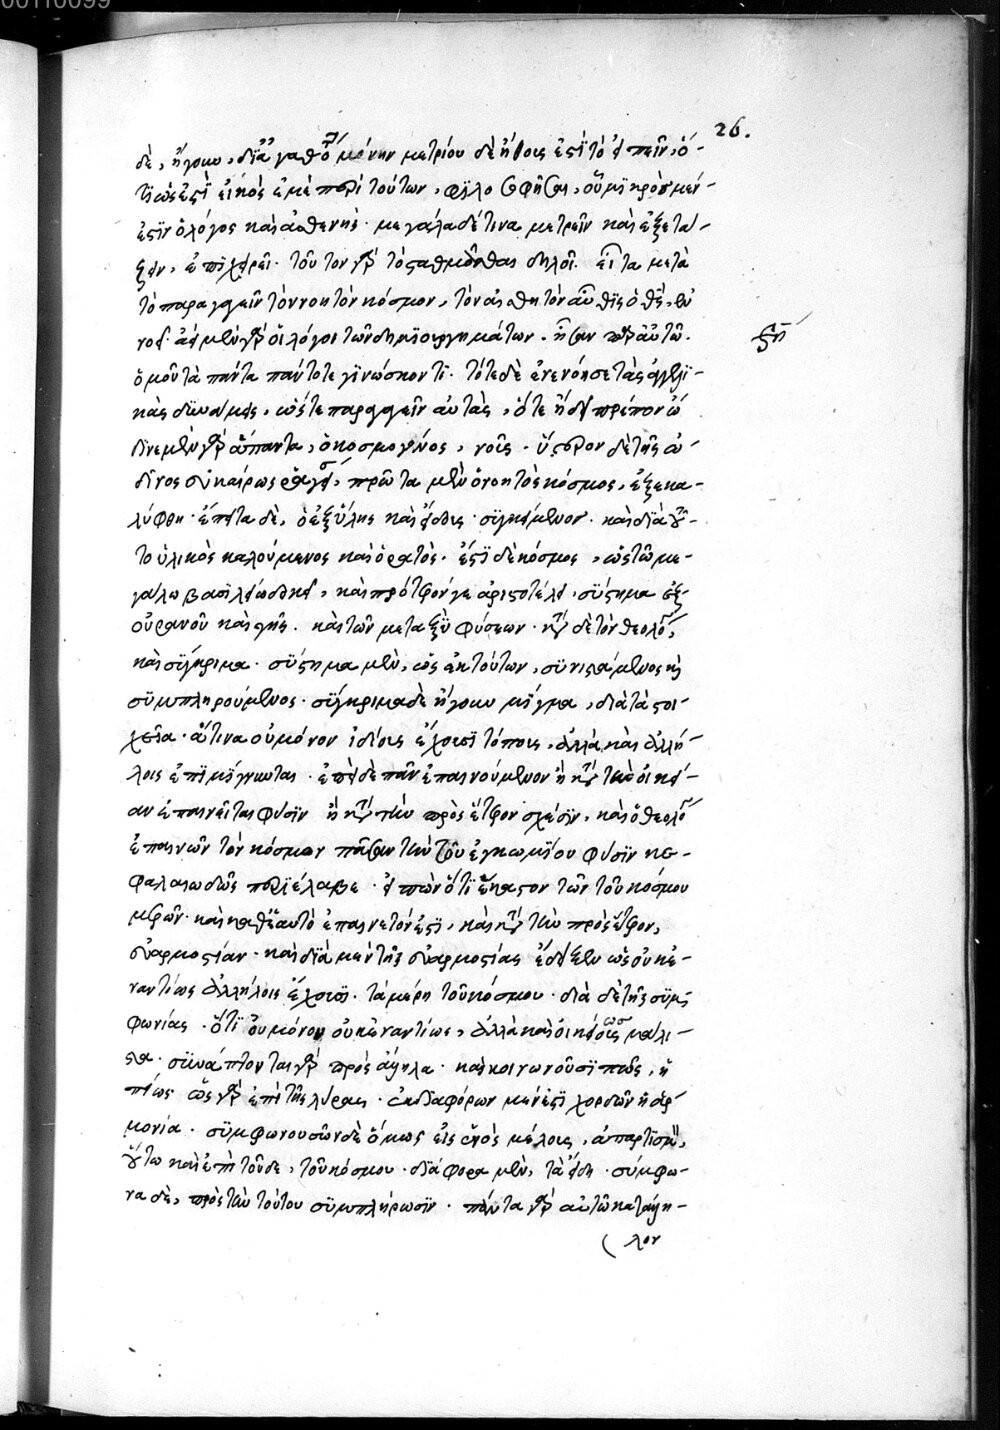 00110099
26.
δὲ, ἤγουν, διὰ γαθο μόνην μετρίου δὲ ἤθους ἐστὶ τὸ εἰπεῖν, ὅ-
τι ὡς ἐστὶ εἰκὸς ἐμὲ περὶ τούτων, φιλοσοφῆσαι, οὐ μικρὸς μέν
ἐστιν ὁ λόγος καὶ ἀσθενής· μεγάλα δέ τινα μετρεῖν καὶ ἐξετά-
ζειν, ἐπιχειρεῖ· τοῦτον γὰρ τὸ σταθμᾶσθαι δηλοῖ. εἶτα μετὰ
τὸ παραγαγεῖν τὸν νοητὸν κόσμον, τὸν αἰσθητὸν αὖθις
ἀεὶ μὲν γὰρ οἱ λόγοι τῶν δημιουργημάτων. ἦσαν παρ' αὐτῷ.
ὁμοῦ τὰ πάντα πάντοτε γινώσκοντι. τότε δὲ ἐνενόησε τὰς ἀγγελι-
κὰς δυνάμεις, ὥστε παραγαγεῖν αὐτὰς, ὅτε ἤδη πρέπον ὤ
δινε μὲν γὰρ ἅπαντα, ὁ κοσμογόνος, νοῦς. ὕστερον δὲ τῆς ὠ-
δῖνος εὐκαίρως ῥαγεί, πρῶτα μὲν ὁ νοητὸς κόσμος, ἐξεκα-
λύφθη· ἔπειτα δὲ, ὁ ἐξ ὕλης καὶ εἴδους συγκείμενος. καὶ διὰ τοῦ-
το ὑλικὸς καλούμενος καὶ ὁρατὸς. ἔστι δὲ κόσμος, ὡς τῷ με-
γάλῳ βασιλείῳ δοκεῖ, καὶ πρότερόν γε ἀριστοτέλει, σύστημα ἐξ
οὐρανοῦ καὶ γῆς. καὶ τῶν μεταξὺ φύσεων· κατὰ δὲ τὸν θεολό,
καὶ σύγκριμα. σύστημα μὲν, ὡς ἐκ τούτων, συνιστάμενος καὶ
συμπληρούμενος. σύγκριμα δὲ ἤγουν μίγμα, διὰ τὰ στοι-
χεῖα. ἅτινα οὐ μόνον ἰδίοις ἔχουσι τόποις, ἀλλὰ καὶ ἀλλή-
λοις ἐπιμίγνυται. ἐπεὶ δὲ πᾶν ἐπαινούμενον ἢ κατὰ τὴν οἰκεί-
αν ἐπαινεῖται φύσιν ἢ κατὰ τὴν πρὸς ἕτερον σχέσιν, καὶ ὁ θεολό
ἐπαινῶν τὸν κόσμον πᾶσαν τὴν τοῦ ἐγκωμίου φύσιν κε-
φαλαιωδῶς περιέλαβε. εἰπὼν ὅτι ἕκαστον τῶν τοῦ κόσμου
μερῶν. καὶ καθ' ἑαυτὸ ἐπαινετόν ἐστι, καὶ κατὰ τὴν πρὸς ἕτερον,
εὐαρμοστίαν. καὶ διὰ μὲν τῆς εὐαρμοστίας ἔδειξεν ὡς οὐκ ἐ-
ναντίως ἀλλήλοις ἔχουσι. τὰ μέρη τοῦ κόσμου. διὰ δὲ τῆς συμ-
φωνίας. ὅτι οὐ μόνον οὐκ ἐναντίως, ἀλλὰ καὶ οἰκείως μάλι-
στα. συνάπτονται γὰρ πρὸς ἄλληλα. καὶ κοινωνοῦσί πως, ἢ
πῶς ὡς γὰρ ἐπὶ τῆς λύρας. ἐκ διαφόρων μέν ἐστι χορδῶν ἡ ἁρ-
μονία. συμφωνουσῶν δὲ ὅμως εἰς ἑνὸς μέλους, ἀπαρτισμ,
οὕτω καὶ ἐπὶ τοῦδε, τοῦ κόσμου. διάφορα μὲν, τὰ εἴδη. σύμφω-
να δὲ, πρὸς τὴν τούτου συμπλήρωσιν. πάντα γὰρ αὐτῷ κατάλλη-
λον